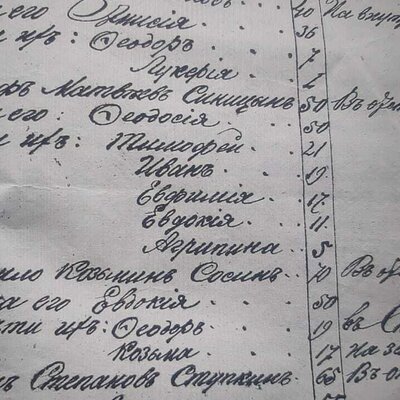 его Анисія 40 На внут
ихъ: Ѳеодоръ 36
7
Лукерія 1
Матвѣевъ Синицынъ 50 Въ
его: Ѳеодосія 50
ихъ: Тимофей 21
Иванъ 19
Евфимія 17
Евдокія 11
Агрипина 5
Козьминъ Сосинъ 70 Въ
его Евдокія 50
ти ихъ: Ѳеодоръ 19 въ С
Козьма 17 На за
Степановъ Ступкинъ 65 Въ